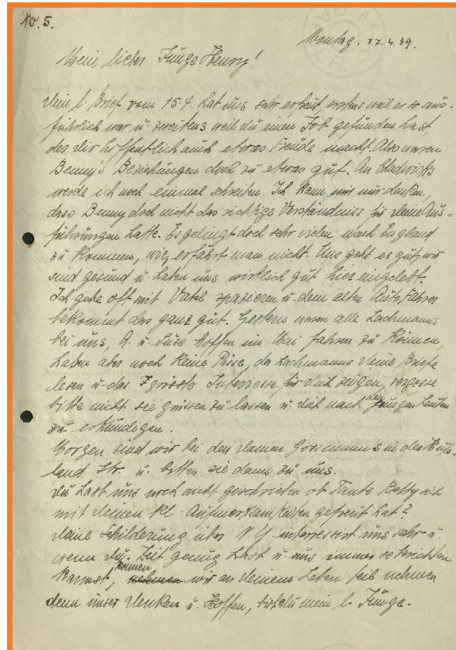 No. 5.
Montag. 17.4.39.
Mein lieber Junge Henry!
Dein l. Brief vom 15.4. hat uns sehr erfreut, erstens weil er so aus-
führlich war u. zweitens weil du einen Job gefunden hast
der dir hoffentlich auch etwas Freude macht. Also waren
Benny's Beziehungen doch zu etwas gut. An
werde ich noch einmal schreiben. Ich kann mir nur denken,
dass Benny doch nicht das richtige Verständniss für deine Aus-
führungen hatte. Es gelingt doch sehr vielen nach England
zu kommen, wie, erfährt man nicht. Uns geht es gut, wir
sind gesund u. haben uns wirklich gut hier eingelebt.
Ich gehe oft mit Vater spazieren u. dem alten Autofahrer
bekommt das ganz gut. Gestern waren alle Lachmanns
bei uns, u. hoffen im Mai fahren zu können,
haben aber noch keine Pässe, da Lachmanns deine Briefe
lesen u. das grösste Interesse für dich zeigen, vergesse
bitte nicht sie grüssen zu lassen u. dich nach den jungen Leuten
zu erkundigen.
Morgen sind wir bei den Damen in der
land Str. u. bitten sie dann zu uns.
Du hast uns noch nicht geschrieben ob Tante Betty sich
mit deinen kl. Aufmerksamkeiten gefreut hat?
Deine Schilderung über N.Y. interessiert uns sehr u.
wenn du Zeit genug hast u. uns immer so berichten
kannst, können wir an deinem Leben teil nehmen
denn unser Denken u. Hoffen, bist du mein l. Junge.